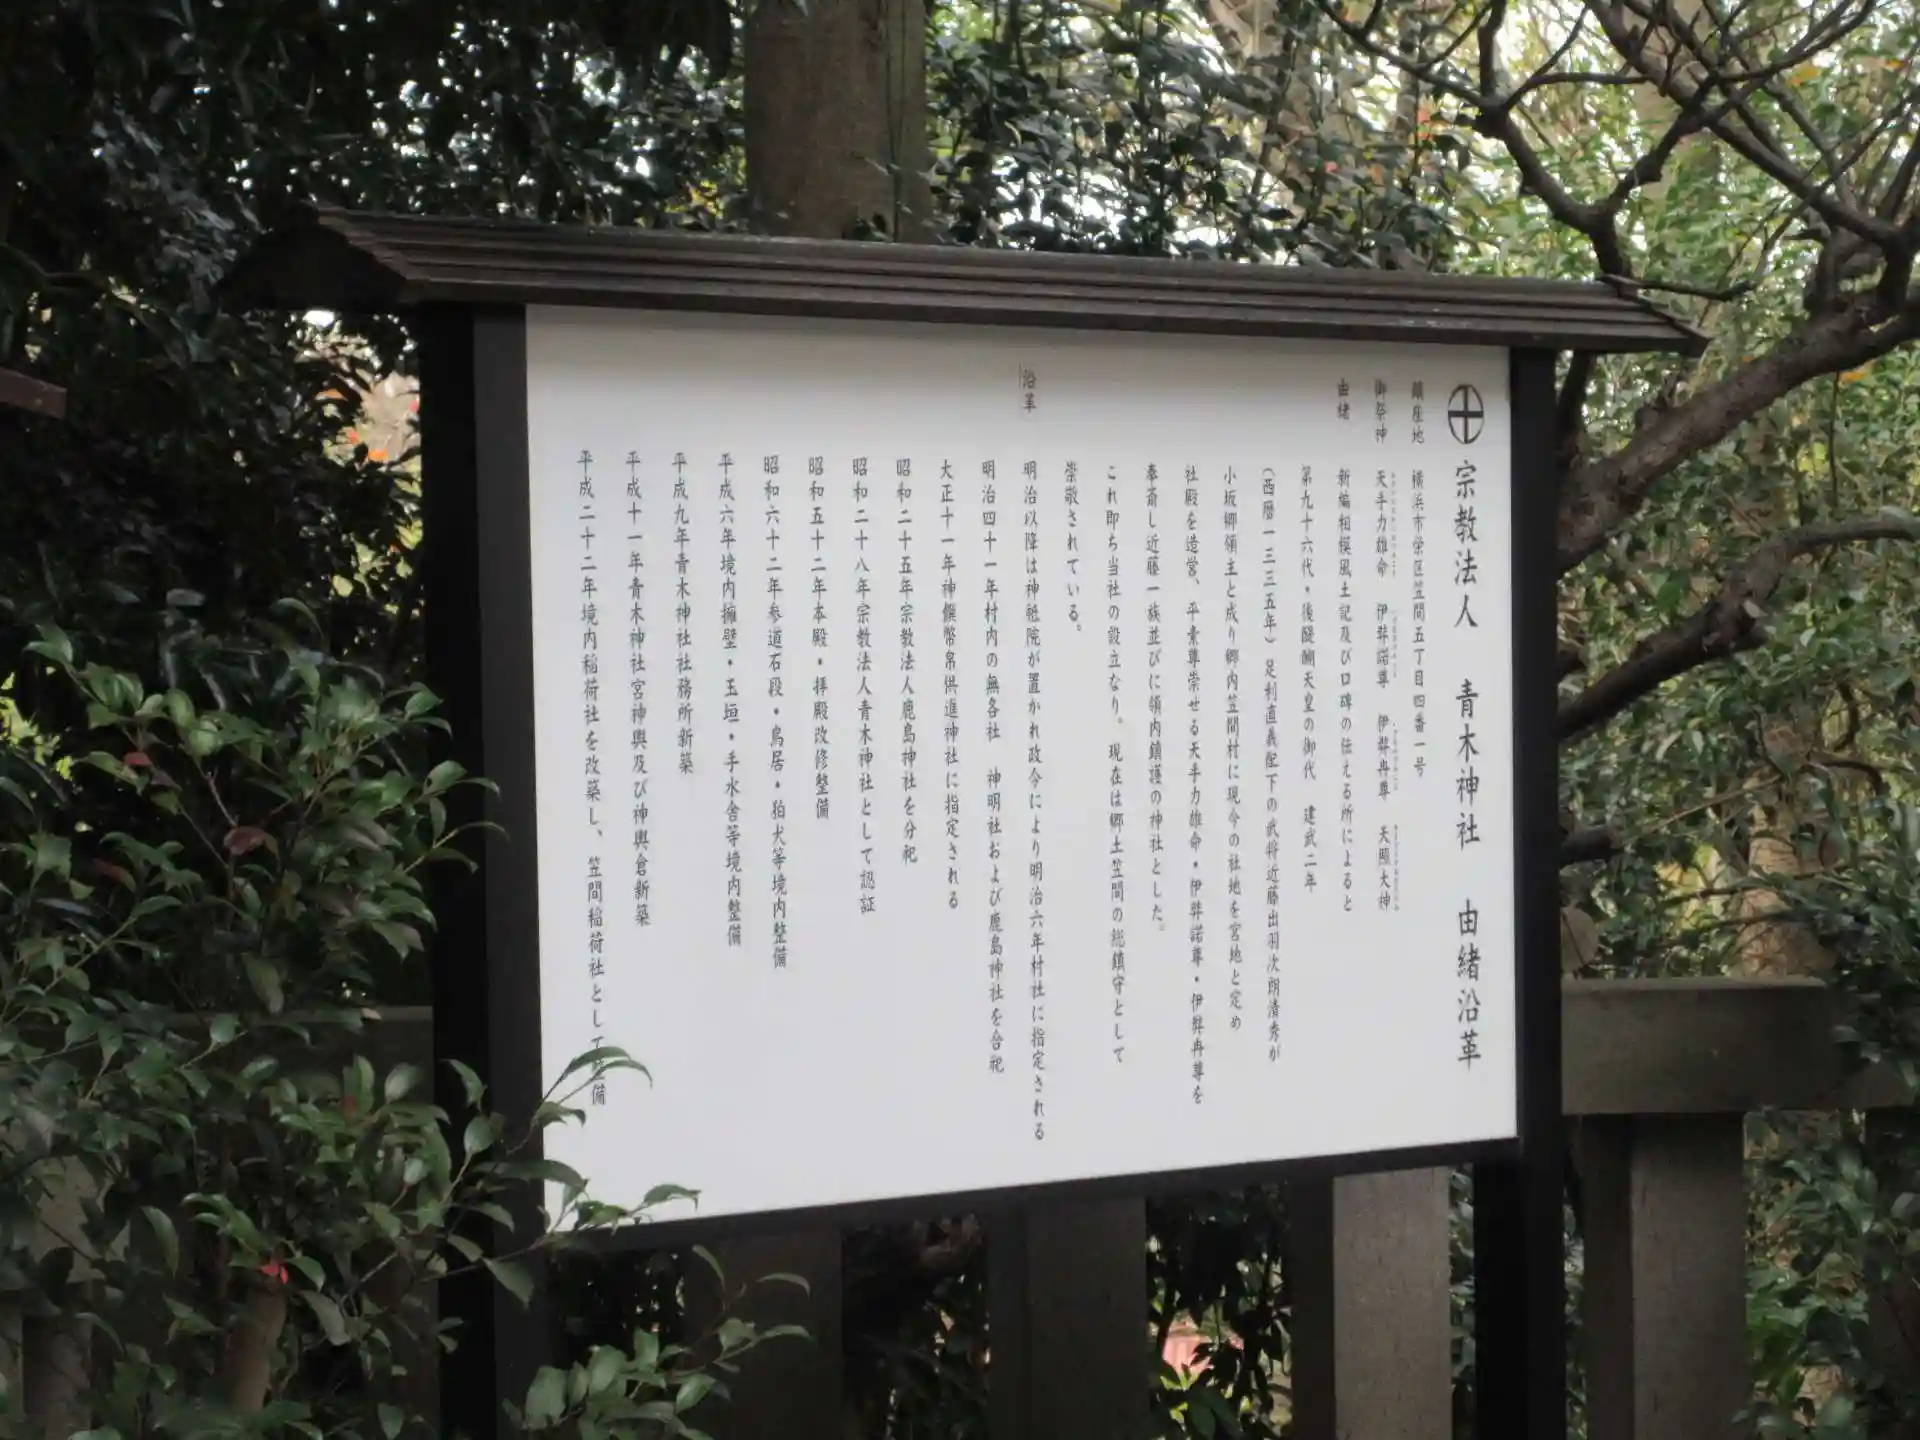 宗教法人 青木神社 由緒沿革
鎮座地 横浜市栄区笠間五丁目四番一号
御祭神 天手力雄命 伊弉諾尊 伊弉冉尊 天照大神
由緒 新編相模風土記及び口碑の伝える所によると
第九十六代・後醍醐天皇の御代 建武二年
(西暦一三三五年)足利直義配下の武将近藤出羽次朗清秀が
小坂郷領主と成り郷内笠間村に現今の社地を宮地と定め
社殿を造営、平素尊崇せる天手力雄命・伊弉諾尊・伊弉冉尊を
奉斎し近藤一族並びに領内鎮護の神社とした。
これ即ち当社の設立なり。現在は郷土笠間の総鎮守として
崇敬されている。
沿革 明治以降は神祇院が置かれ政令により明治六年村社に指定される
明治四十一年村内の無各社 神明社および鹿島神社を合祀
大正十一年神饌幣帛供進神社に指定される
昭和二十五年宗教法人鹿島神社を分祀
昭和二十八年宗教法人青木神社として認証
昭和五十二年本殿・拝殿改修整備
昭和六十二年参道石段・鳥居・狛犬等境内整備
平成六年境内擁壁・玉垣・手水舎等境内整備
平成九年青木神社社務所新築
平成十一年青木神社宮神輿及び神輿倉新築
平成二十二年境内稲荷社を改築し、笠間稲荷社として整備